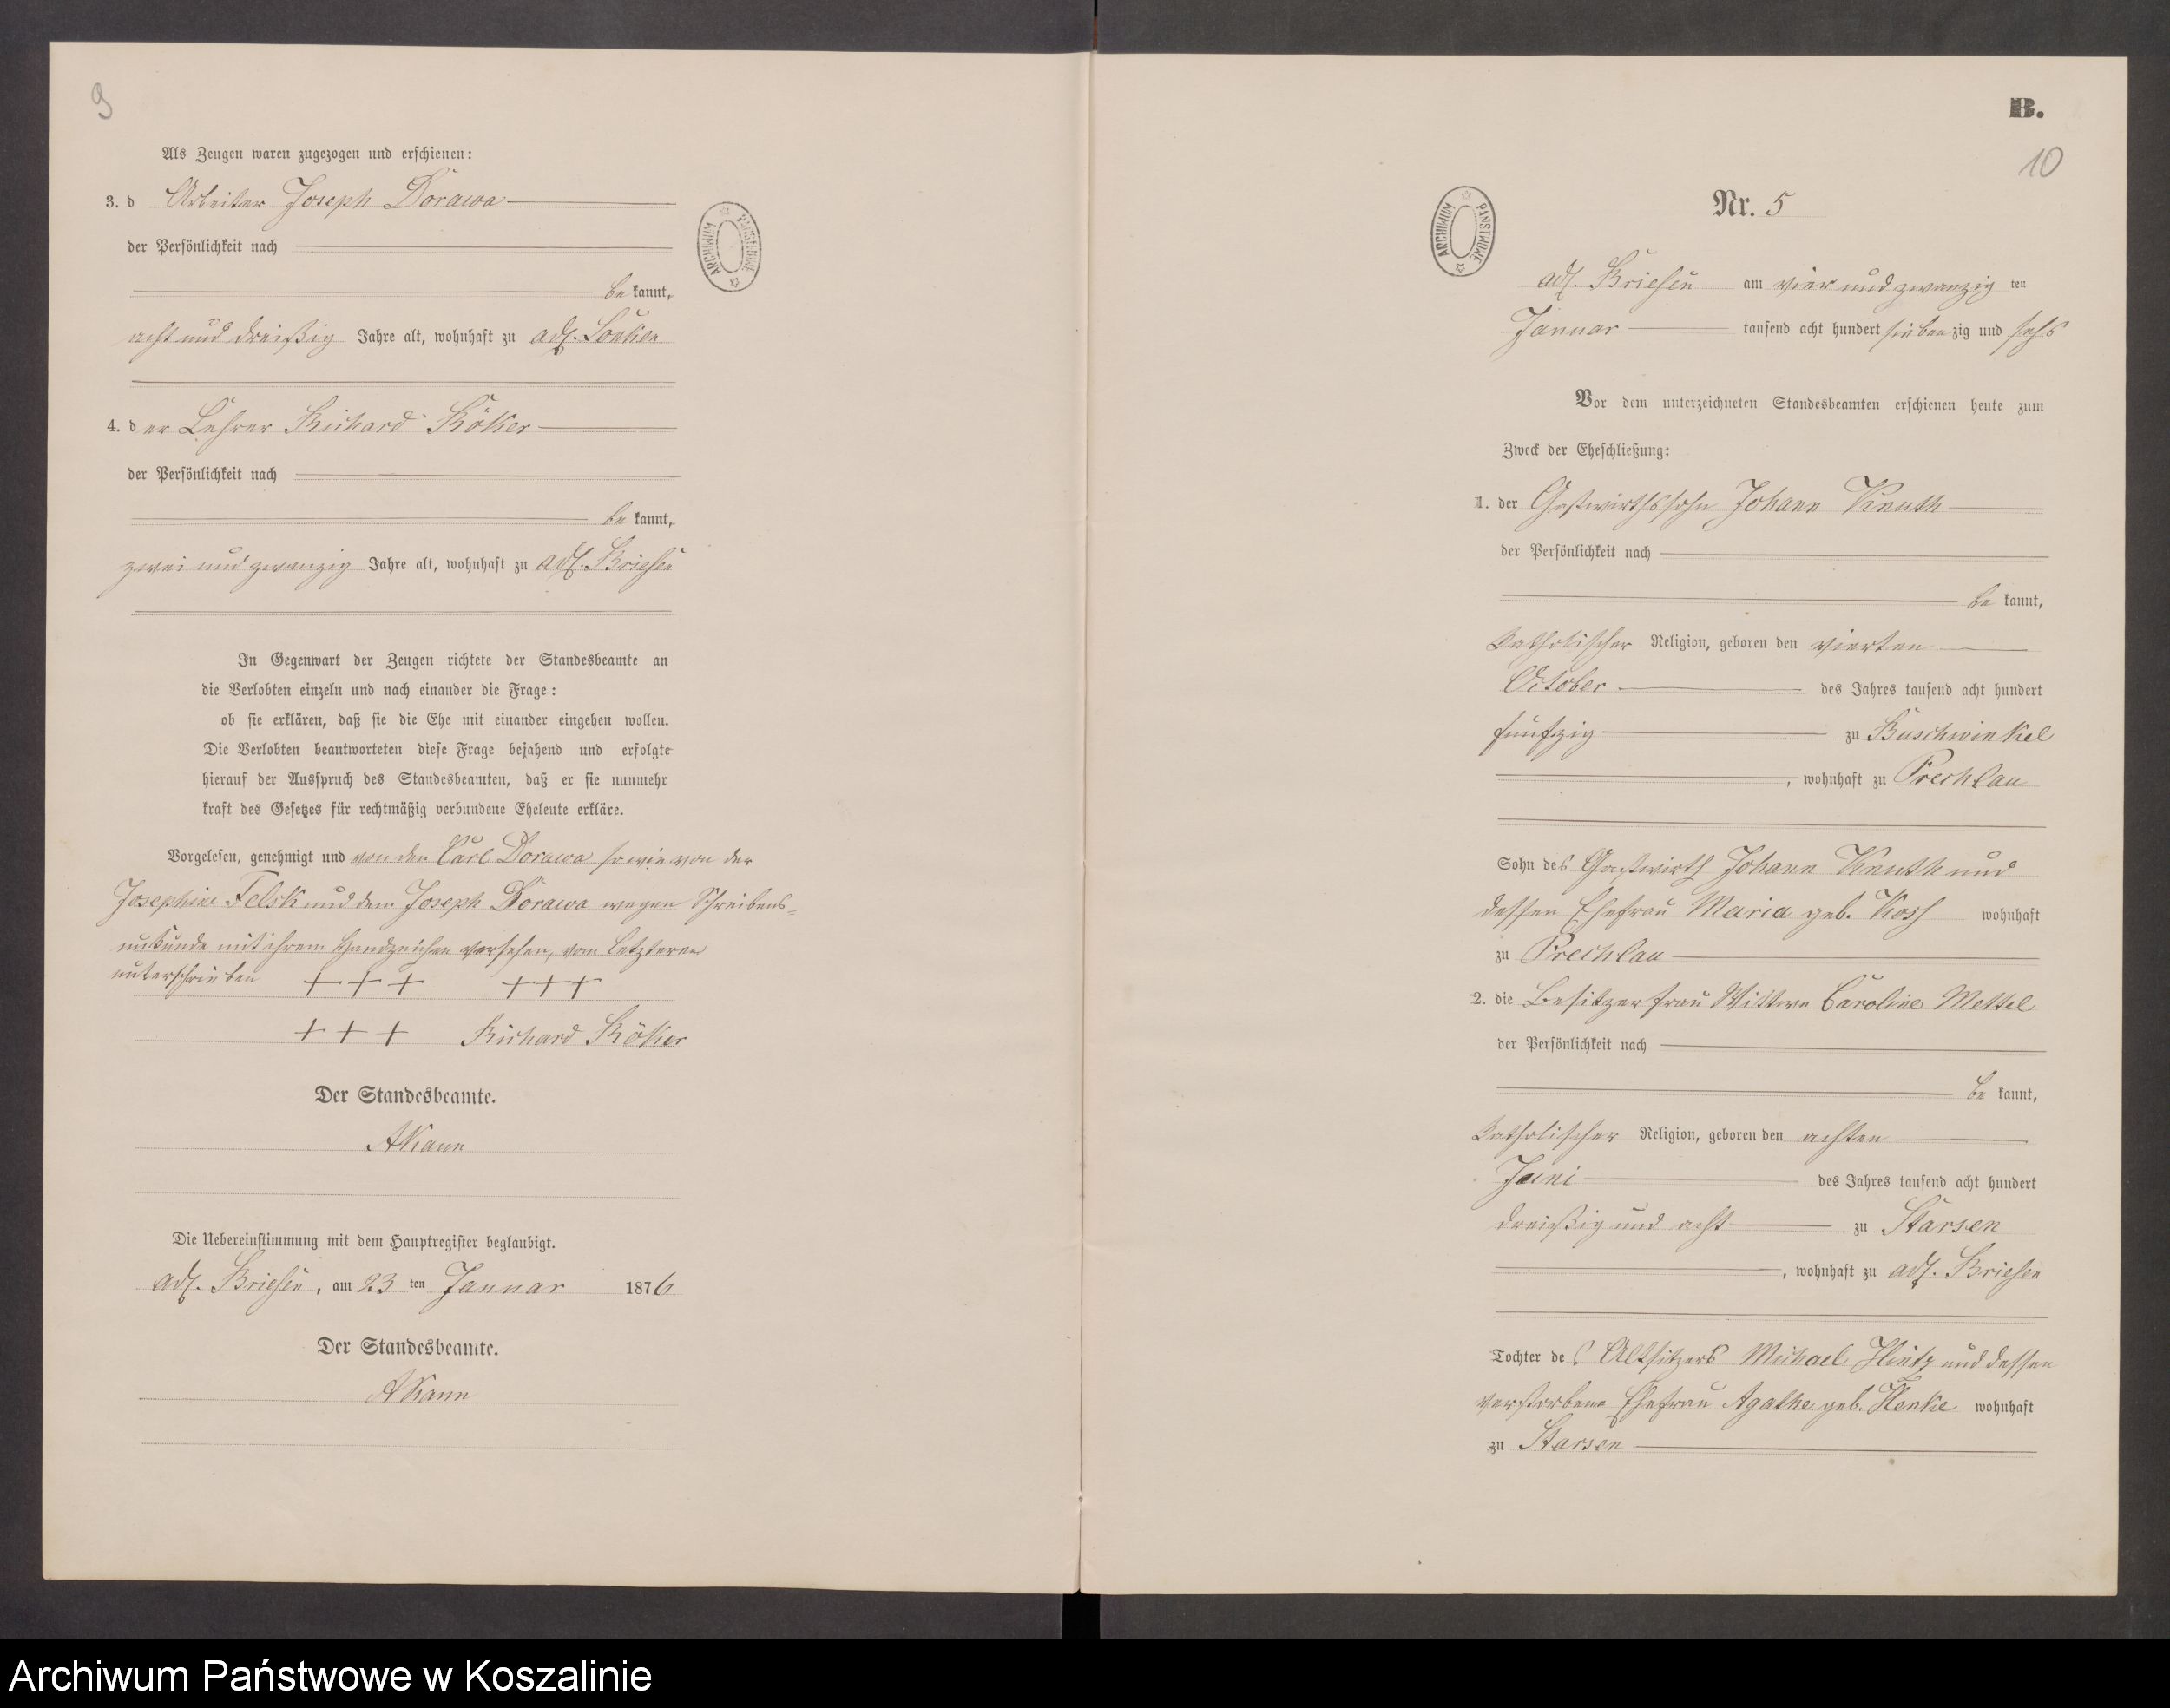 9
Als Zeugen waren zugezogen und erschienen:
3. d Arbeiter Joseph Dorawa
der Persönlichkeit nach
be kannt,
acht und dreißig Jahre alt, wohnhaft zu adl.
4. der Lehrer Richard Röker
der Persönlichkeit nach
be kannt,
zwei und zwanzig Jahre alt, wohnhaft zu adl. Briesen
In Gegenwart der Zeugen richtete der Standesbeamte an
die Verlobten einzeln und nach einander die Frage:
ob sie erklären, daß sie die Ehe mit einander eingehen wollen.
Die Verlobten beantworteten diese Frage bejahend und erfolgte
hierauf der Ausspruch des Standesbeamten, daß er sie nunmehr
kraft des Gesetzes für rechtmäßig verbundene Eheleute erkläre.
Vorgelesen, genehmigt und von den Carl Dorawa sowie von der
Josephine Felsk und dem Joseph Dorawa wegen Schreibens-
unkunde mit ihrem Handzeichen versehen, vom Letzteren
unterschrieben +++ +++
+++ Richard Röker
Der Standesbeamte.
AKann
Die Uebereinstimmung mit dem Hauptregister beglaubigt.
adl. Briesen, am 23 ten Januar 1876
Der Standesbeamte.
AKann
ARCHIWUM PAŃSTWOWE
B.
10
ARCHIWUM PAŃSTWOWE
Nr. 5
adl. Briesen am vier und zwanzig ten
Januar tausend acht hundert siebenzig und sechs
Vor dem unterzeichneten Standesbeamten erschienen heute zum
Zweck der Eheschließung:
1. der Gastwirthssohn Johann Knuth
der Persönlichkeit nach
be kannt,
katholischer Religion, geboren den vierten
October des Jahres tausend acht hundert
funfzig zu Buschwinkel
, wohnhaft zu Prechlau
Sohn des Gastwirth Johann Knuth und
dessen Ehefrau Maria geb. wohnhaft
zu Prechlau
2. die Besitzerfrau Wittwe Caroline Mettel
der Persönlichkeit nach
be kannt,
katholischer Religion, geboren den achten
Juni des Jahres tausend acht hundert
dreißig und acht zu Starsen
, wohnhaft zu adl. Briesen
Tochter des Altsitzers Michael Hintz und dessen
verstorbene Ehefrau Agathe geb. Henke wohnhaft
zu Starsen
Archiwum Państwowe w Koszalinie